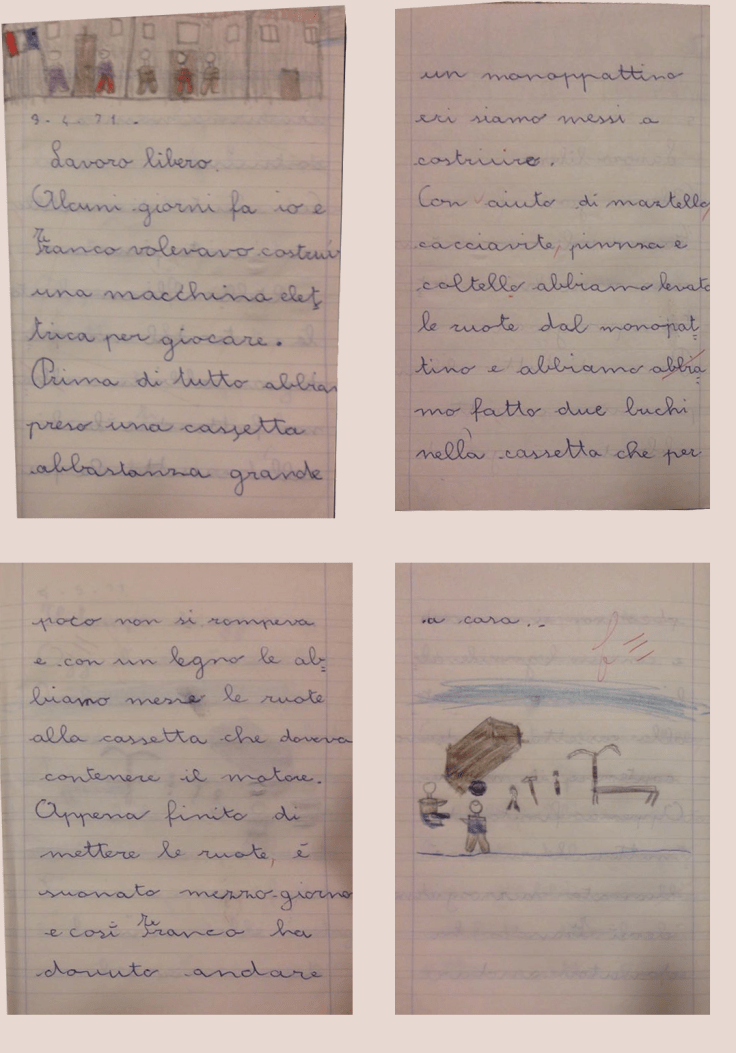 9.6.71.
Lavoro libero.
Alcuni giorni fa io e
Franco volevavo costruir
una macchina elet
trica per giocare.
Prima di tutto abbiam
preso una cassetta
abbastanza grande
un monoppattino
eri siamo messi a
costruire.
Con aiuto di martello,
cacciavite, pinnza e
coltello abbiamo levato
le ruote dal monopat=
tino e abbiamo abbia=
mo fatto due buchi
nella cassetta che per
poco non si rompeva
e con un legno le ab=
biamo messe le ruote
alla cassetta che doveva
contenere il motore.
Appena finito di
mettere le ruote, é
suonato mezzo-giorno
e cosí Franco ha
dovuto andare
a casa...